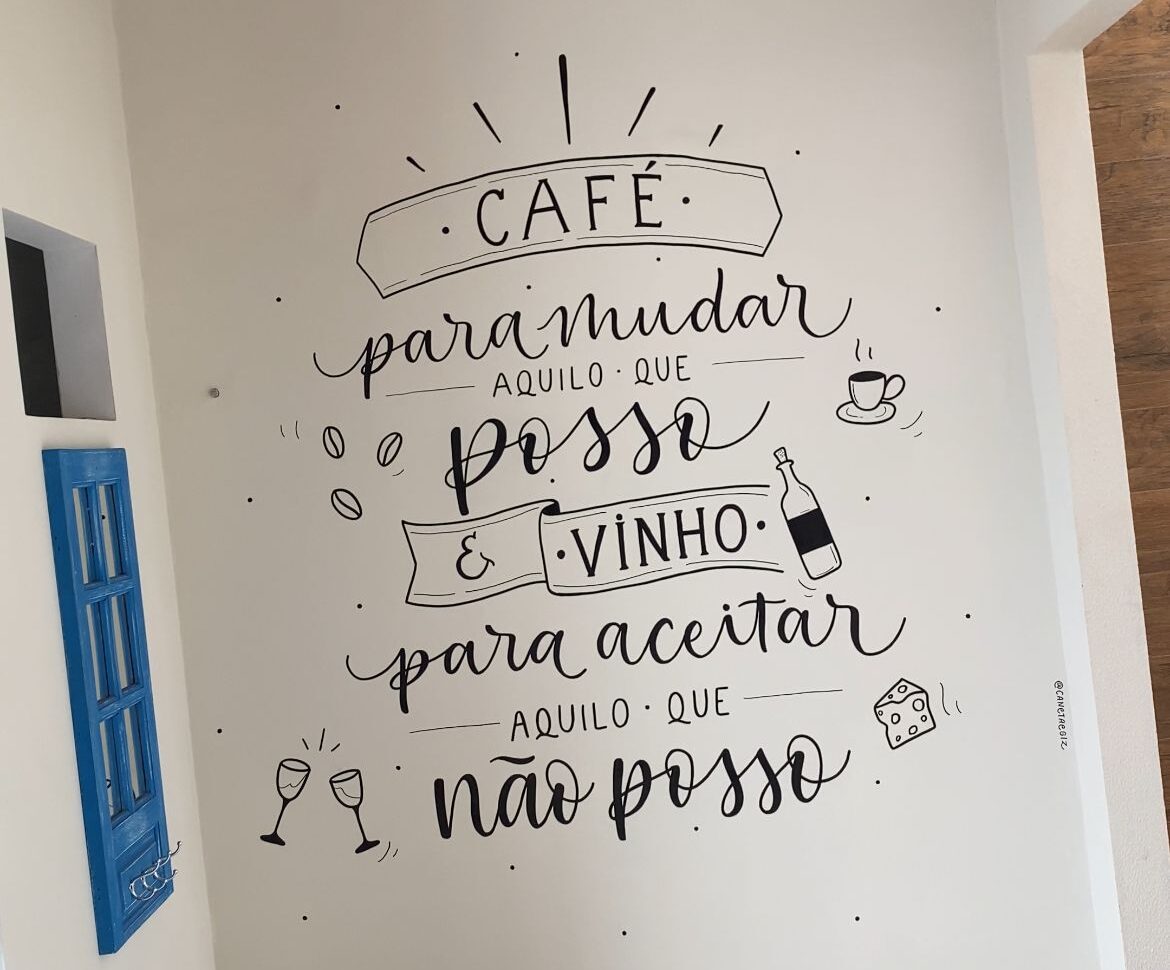 · CAFÉ ·
para mudar
AQUILO · QUE
posso
& · VINHO ·
para aceitar
AQUILO · QUE
não posso
@CANETAEGIZ